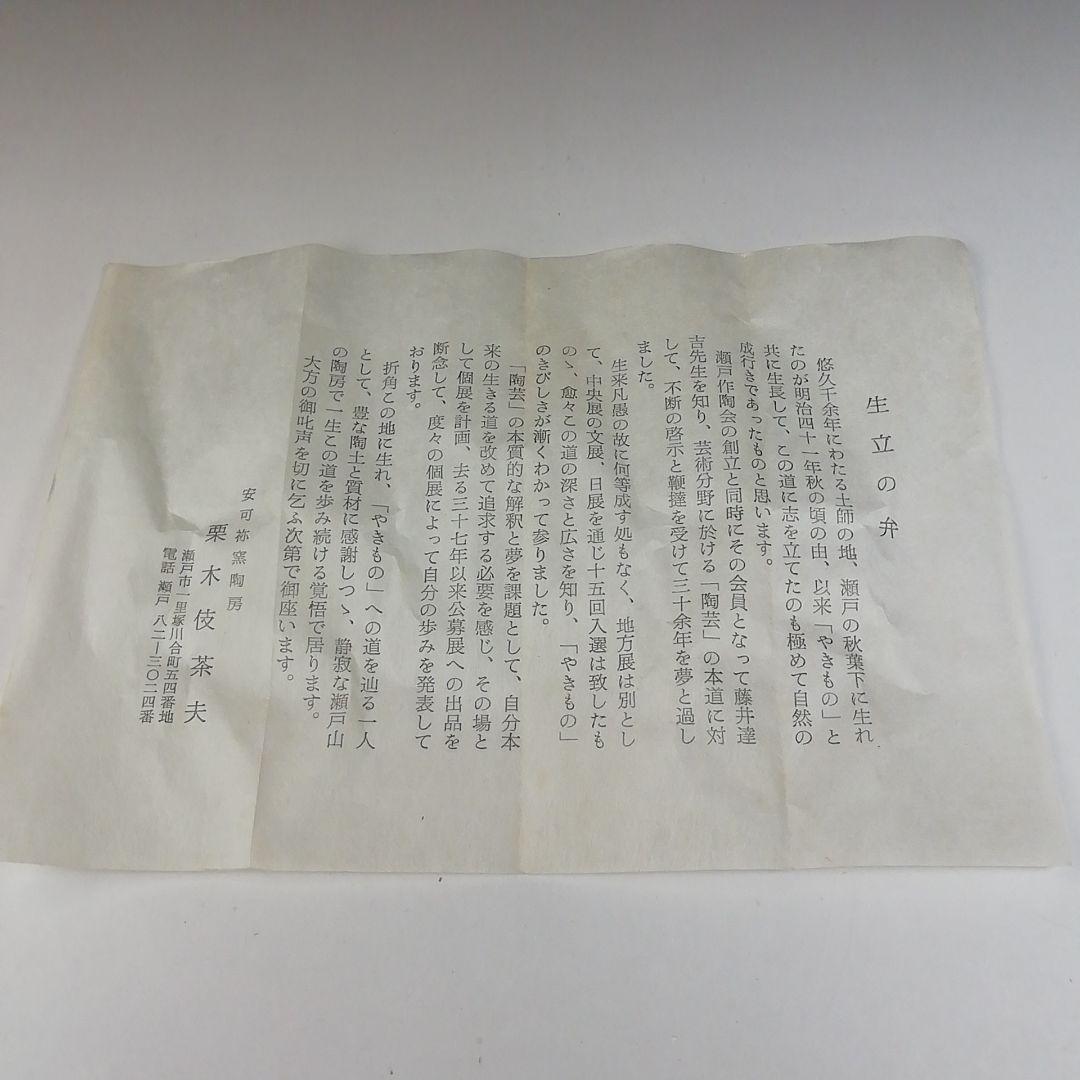 生立の弁
悠久千余年にわたる土師の地、瀬戸の秋葉下に生れ
たのが明治四十一年秋の頃の由、以来「やきもの」と
共に生長して、この道に志を立てたのも極めて自然の
成行きであったものと思います。
瀬戸作陶会の創立と同時にその会員となって藤井達
吉先生を知り、芸術分野に於ける「陶芸」の本道に対
して、不断の啓示と鞭撻を受けて三十余年を夢と過し
ました。
生来凡愚の故に何等成す処もなく、地方展は別とし
て、中央展の文展、日展を通じ十五回入選は致したも
のゝ、愈々この道の深さと広さを知り、「やきもの」
のきびしさが漸くわかって参りました。
「陶芸」の本質的な解釈と夢を課題として、自分本
来の生きる道を改めて追求する必要を感じ、その場と
して個展を計画、去る三十七年以来公募展への出品を
断念して、度々の個展によって自分の歩みを発表して
おります。
折角この地に生れ、「やきもの」への道を辿る一人
として、豊な陶土と質材に感謝しつゝ、静寂な瀬戸山
の陶房で一生この道を歩み続ける覚悟で居ります。
大方の御叱声を切に乞ふ次第で御座います。
安可祢窯陶房
栗木伎茶夫
瀬戸市一里塚川合町五四番地
電話 瀬戸 八二―三〇二四番